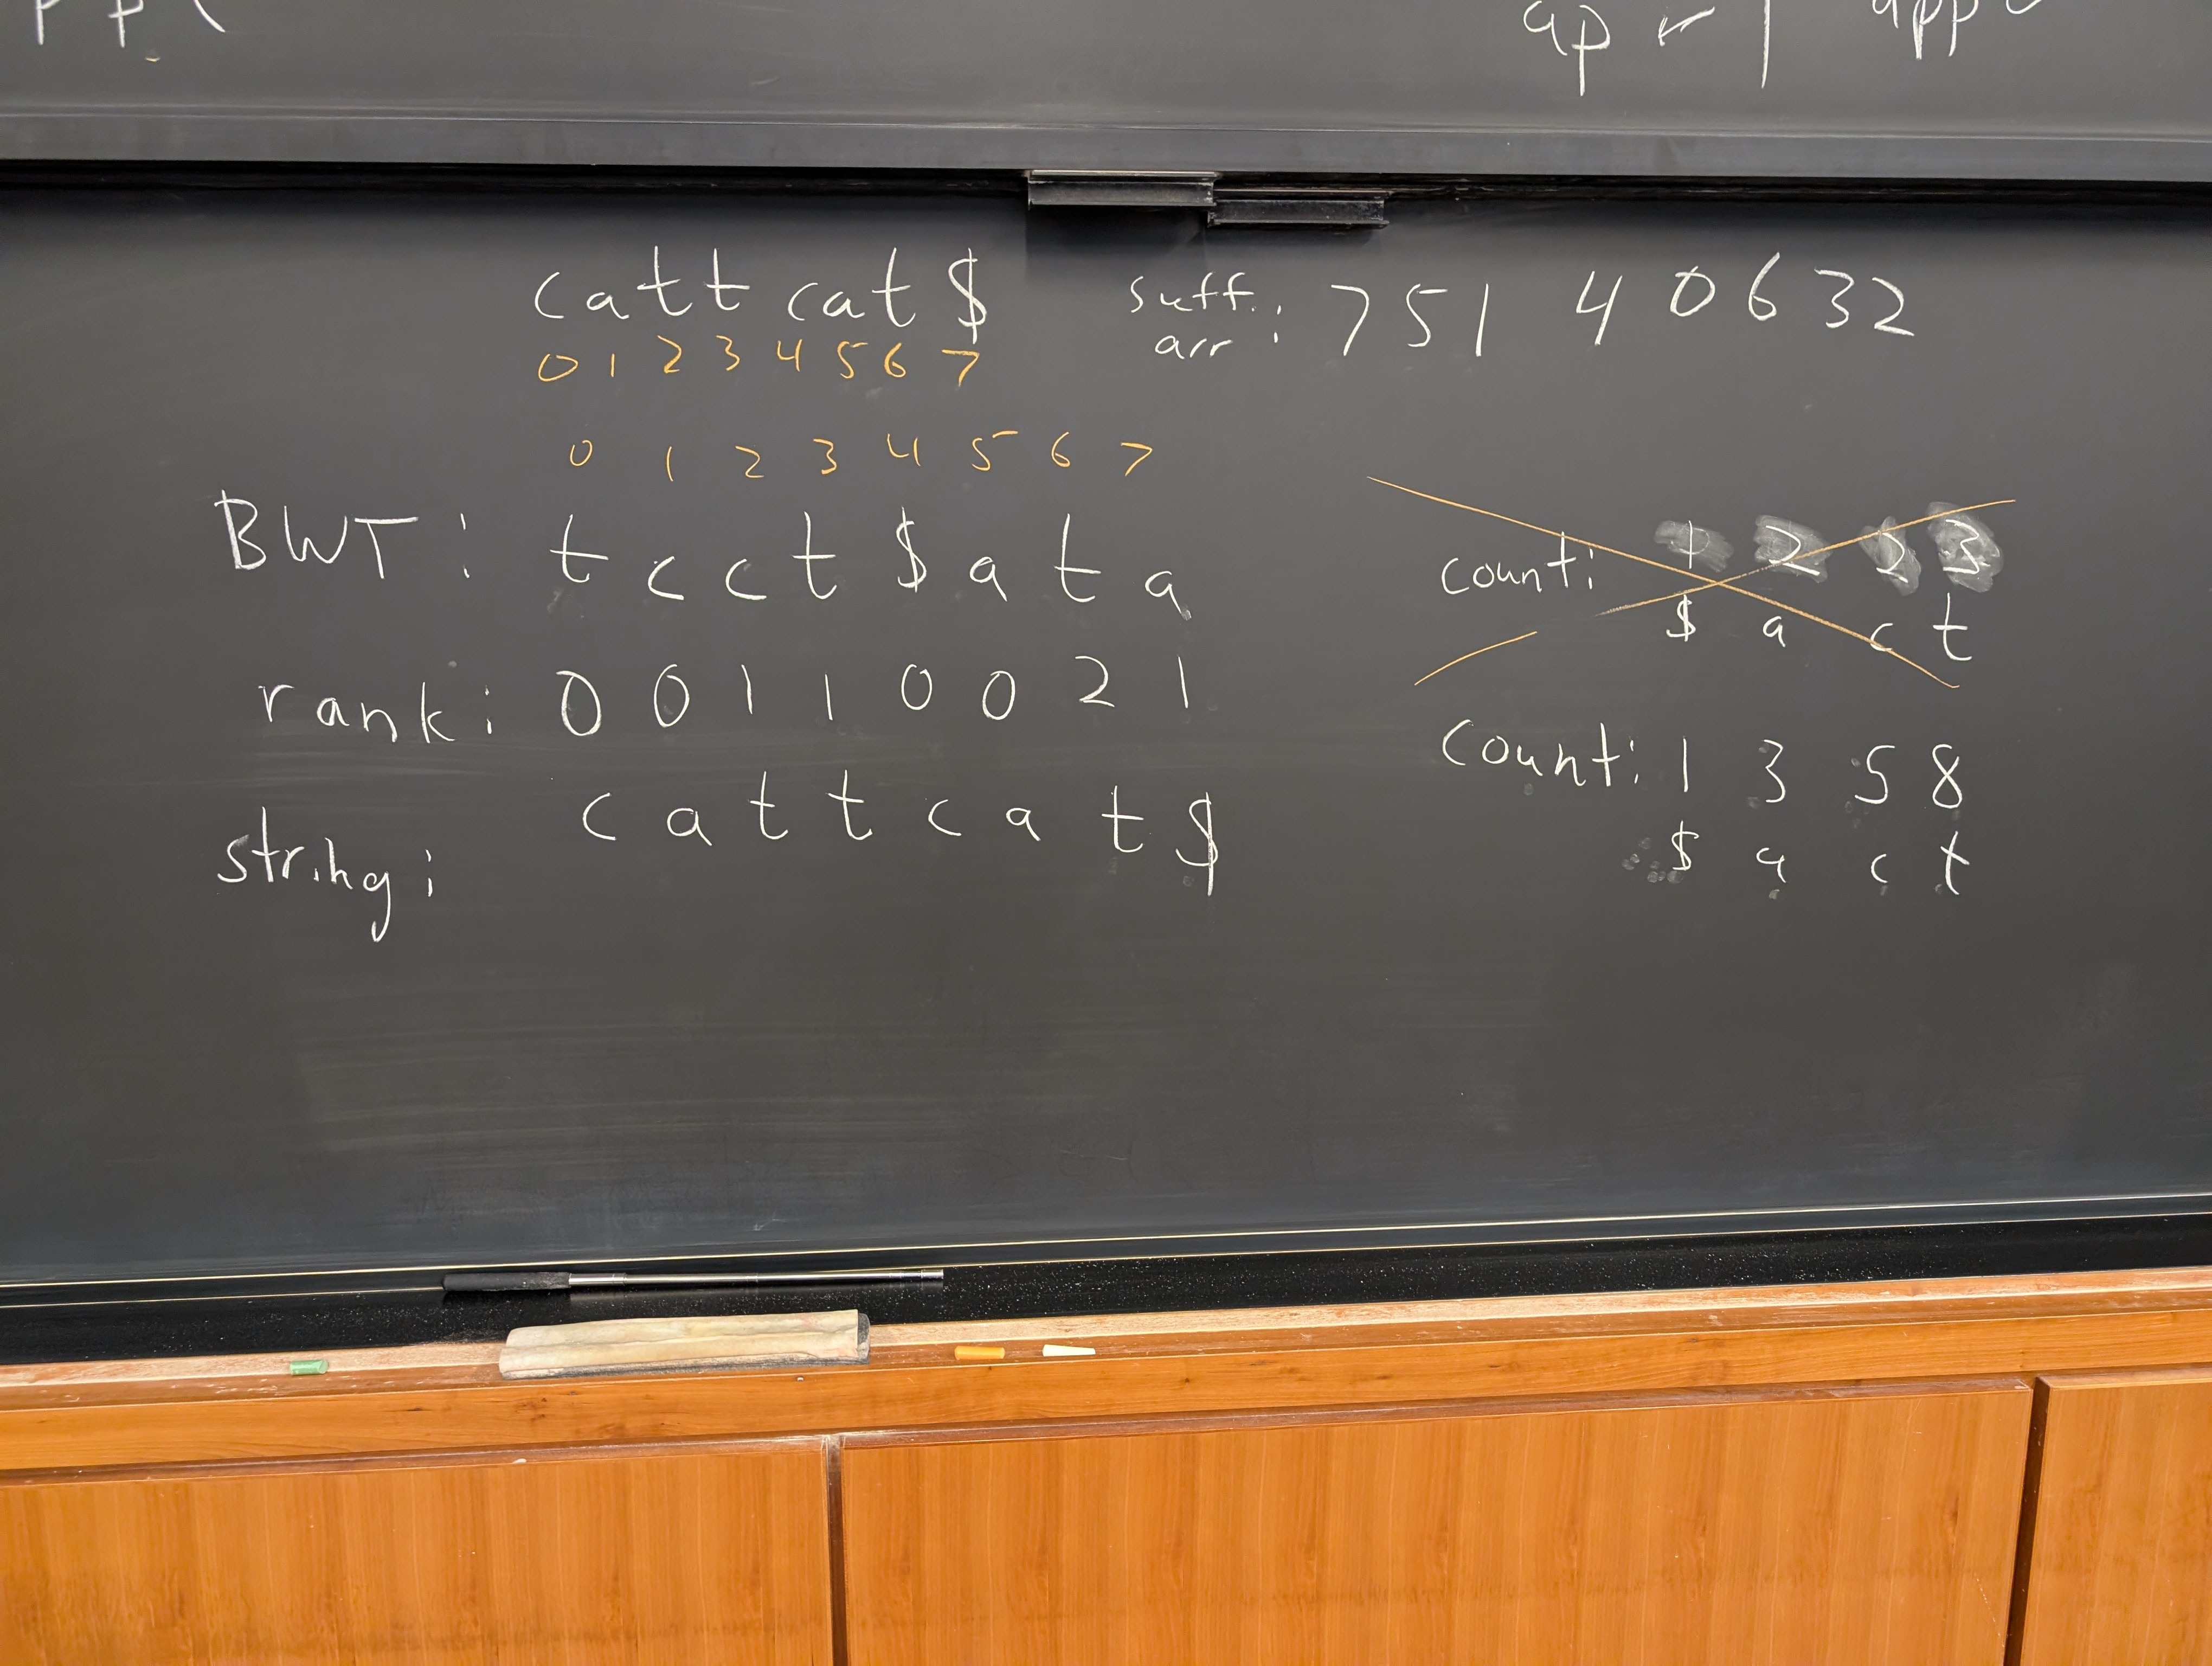 ap
cattcat$ suff. arr: 7 5 1 4 0 6 3 2
0 1 2 3 4 5 6 7
0 1 2 3 4 5 6 7
BWT: t c c t $ a t a
count: 1 2 2 3
$ a c t
rank: 0 0 1 1 0 0 2 1
count: 1 3 5 8
$ a c t
string: c a t t c a t $